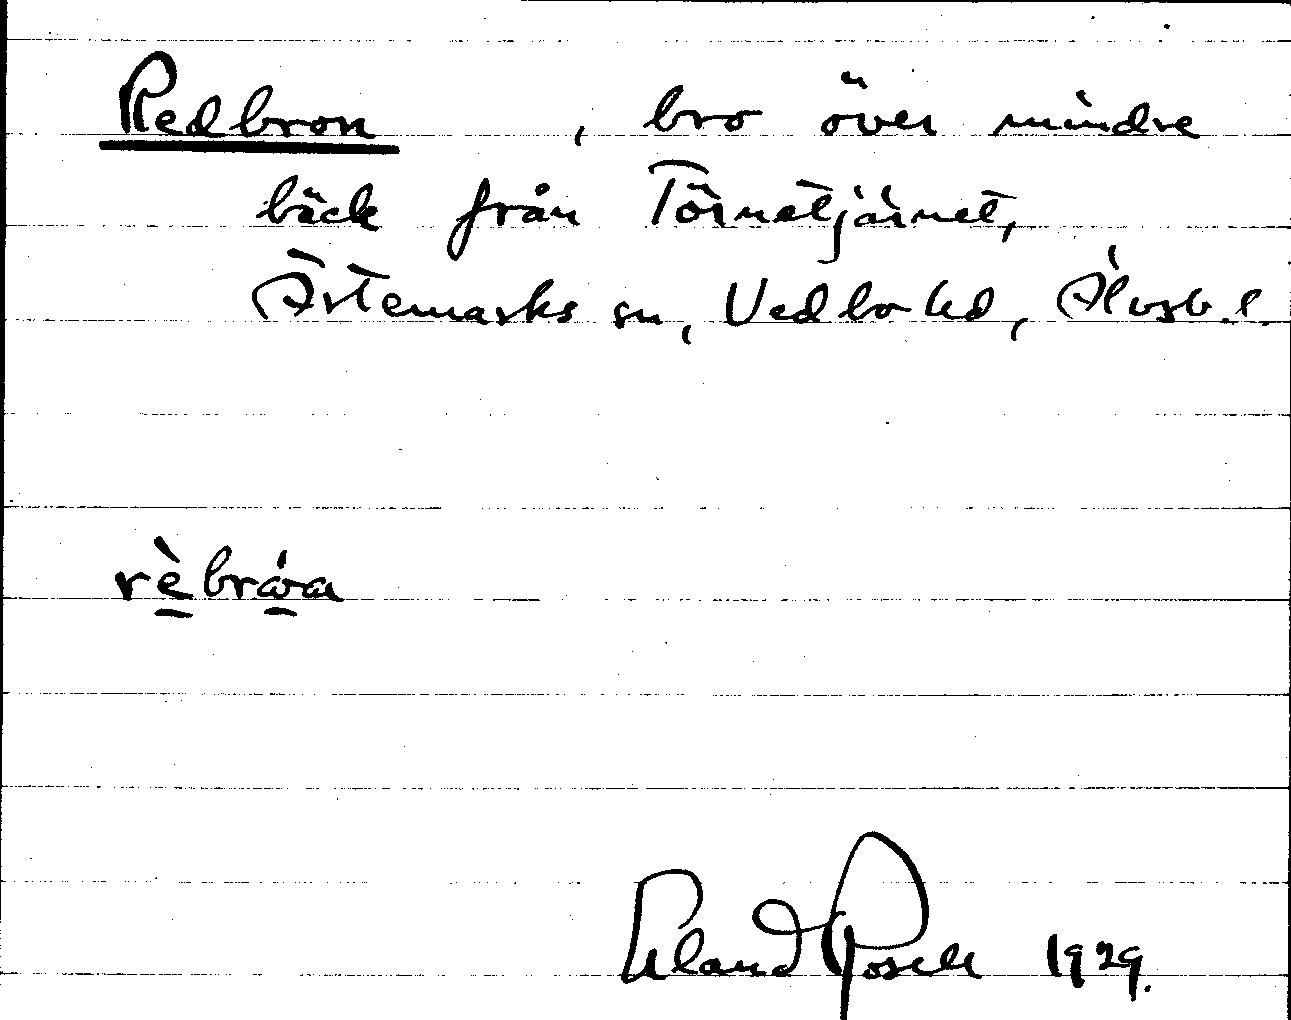 Redbron , bro över mindre
bäck från Törnetjärnet,
Ärtemarks sn, Vedbo hd, Älvsb. l.
rèbróa
1929.